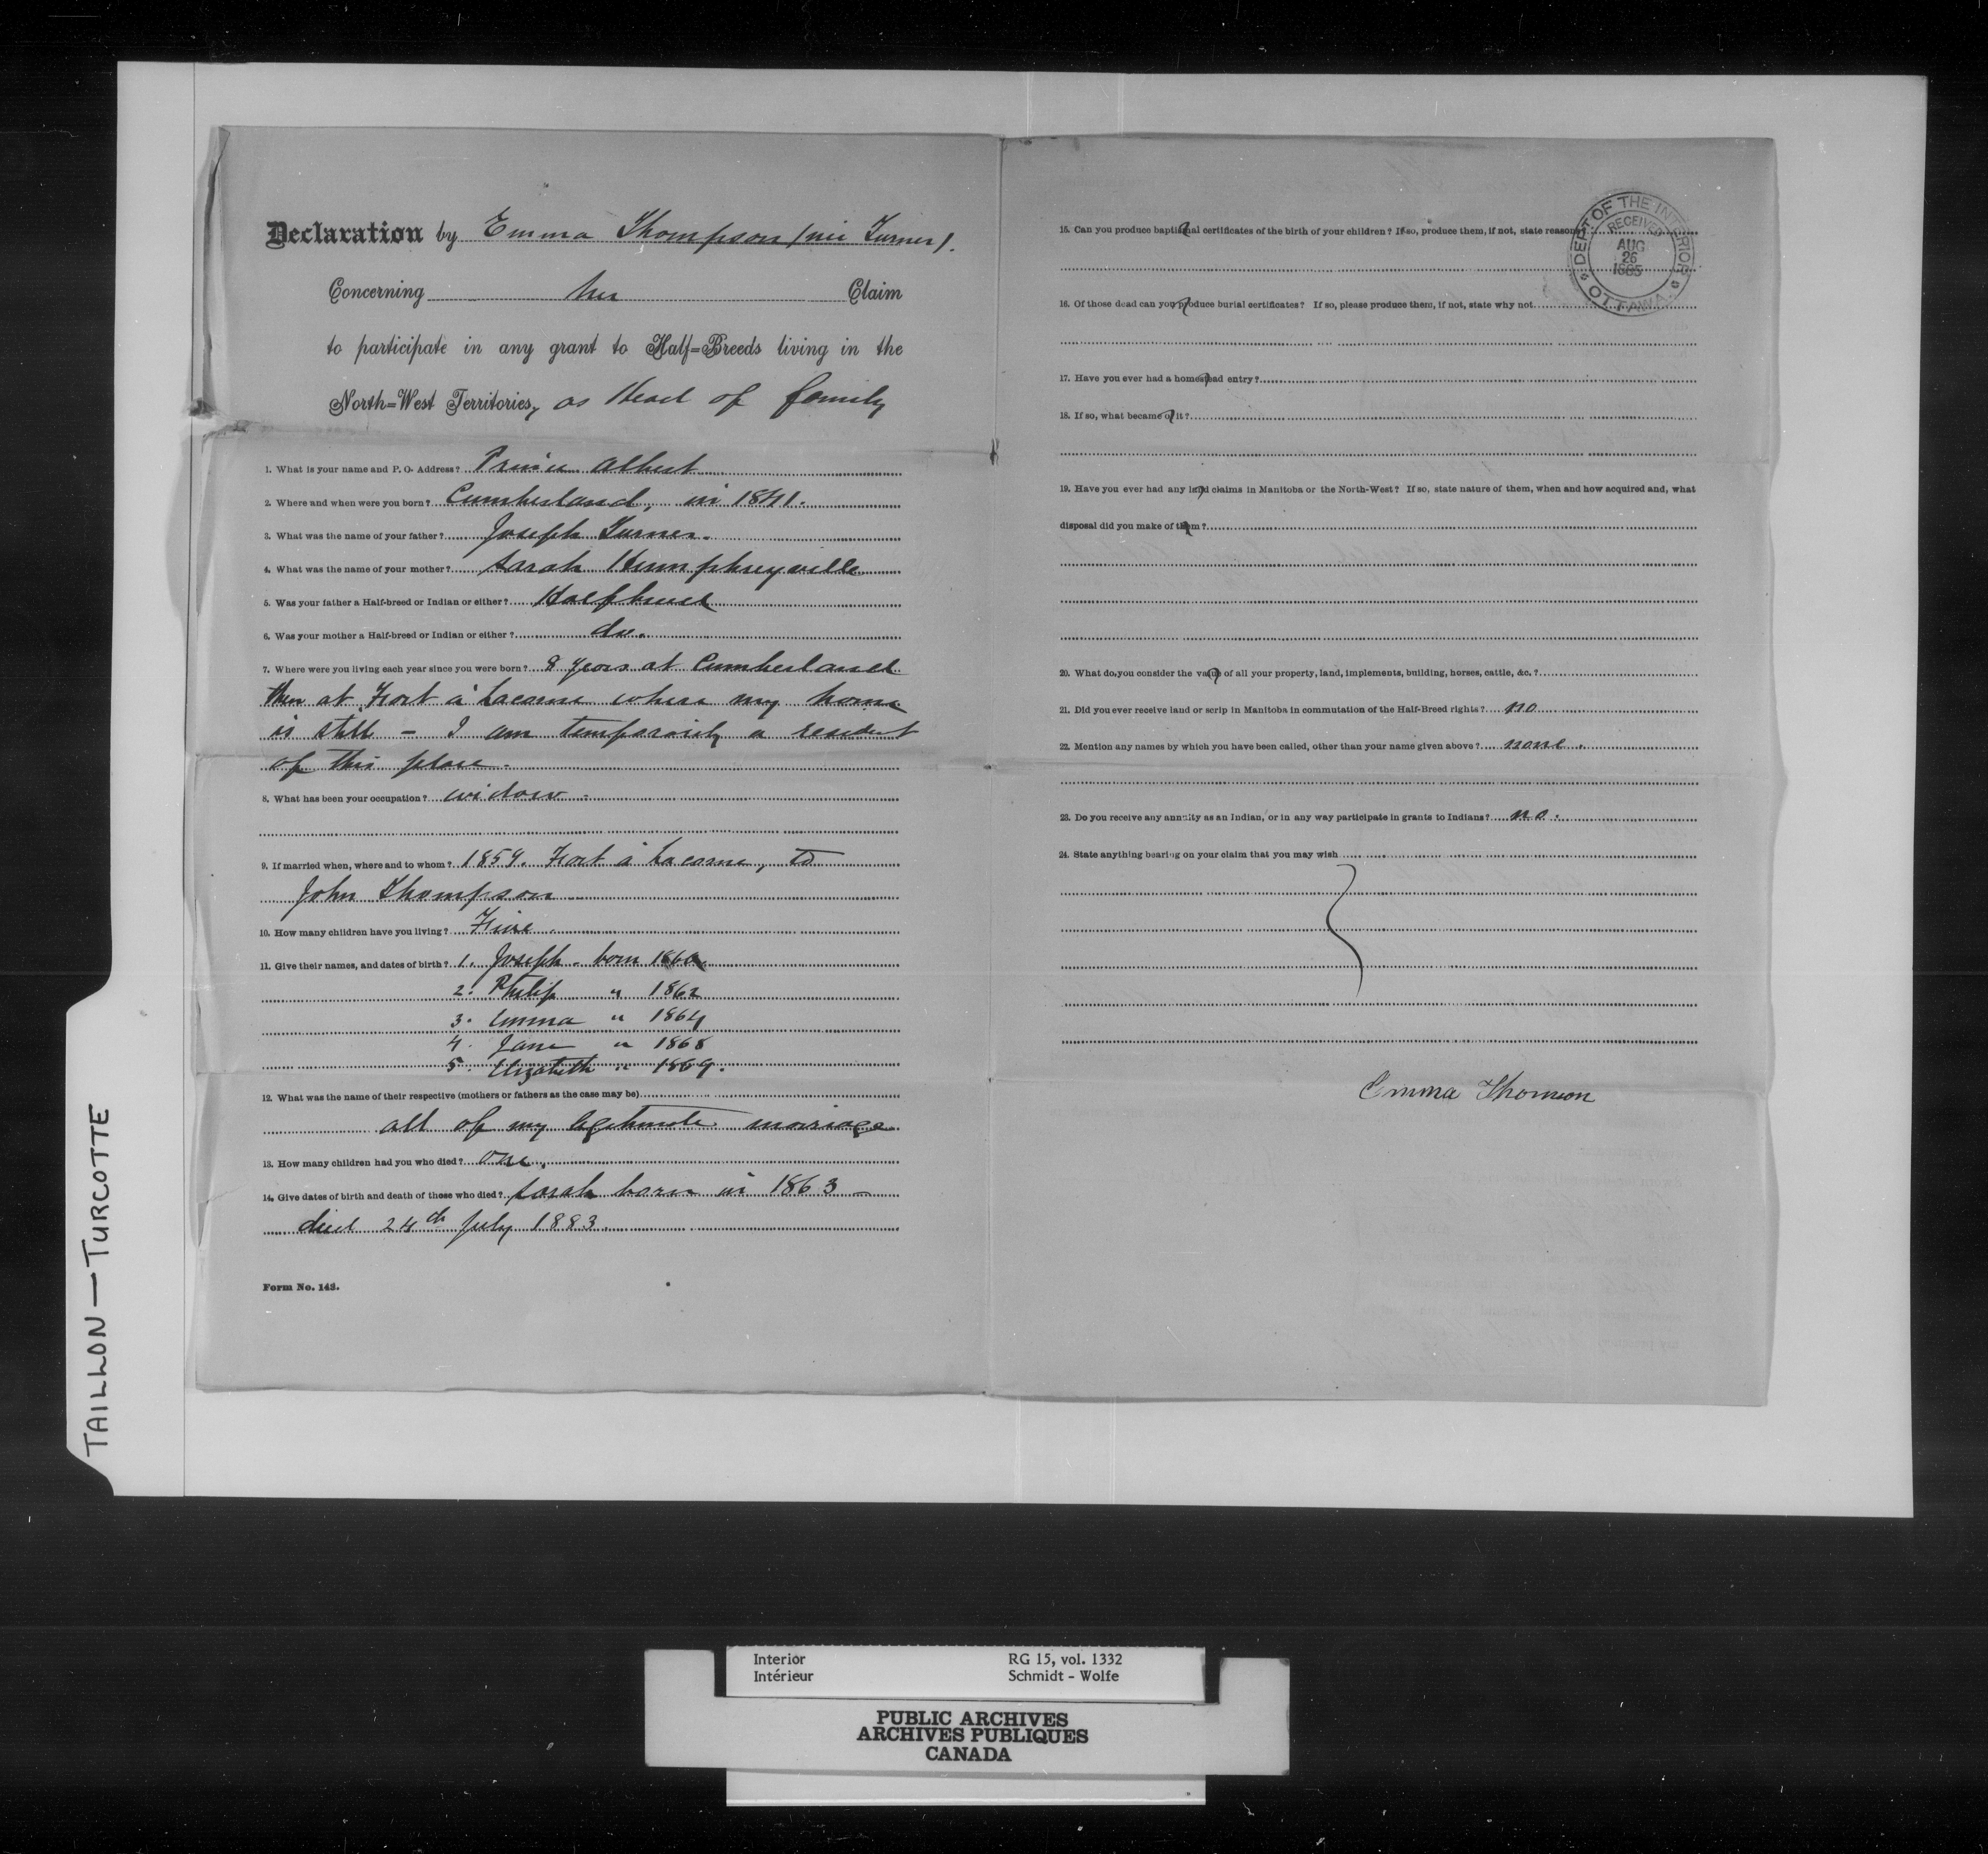 Declaration by Emma Thompson (née Turner).
Concerning her Claim
to participate in any grant to Half=Breeds living in the
North=West Territories, as Head of family
1. What is your name and P. O. Address? Prince Albert
2. Where and when were you born? Cumberland, in 1841.
3. What was the name of your father? Joseph Turner.
4. What was the name of your mother? Sarah Humphreyville
5. Was your father a Half-breed or Indian or either? Halfbreed
6. Was your mother a Half-breed or Indian or either? do.
7. Where were you living each year since you were born? 8 years at Cumberland
then at Fort à Lacorne where my home
is still - I am temporarily a resident
of this place.
8. What has been your occupation? widow -
9. If married when, where and to whom? 1859. Fort à Lacorne, to
John Thompson
10. How many children have you living? Five.
11. Give their names, and dates of birth? 1. Joseph - born 1860
2. Philip " 1862
3. Emma " 1864
4. Jane " 1868
5. Elizabeth " 1869.
12. What was the name of their respective (mothers or fathers as the case may be)
all of my legitimate mariage
13. How many children had you who died? one.
14. Give dates of birth and death of those who died? Sarah born in 1863 -
died 24th July 1883.
Form No. 143.
15. Can you produce baptismal certificates of the birth of your children? If so, produce them, if not, state reasons
16. Of those dead can you produce burial certificates? If so, please produce them, if not, state why not
17. Have you ever had a homestead entry?
18. If so, what became of it?
19. Have you ever had any land claims in Manitoba or the North-West? If so, state nature of them, when and how acquired and, what
disposal did you make of them?
20. What do you consider the value of all your property, land, implements, building, horses, cattle, &c.?
21. Did you ever receive land or scrip in Manitoba in commutation of the Half-Breed rights? no
22. Mention any names by which you have been called, other than your name given above? none.
23. Do you receive any annuity as an Indian, or in any way participate in grants to Indians? no.
24. State anything bearing on your claim that you may wish
Emma Thomson
DEPT OF THE INTERIOR
RECEIVED
AUG
26
1885
OTTAWA
TAILLON — TURCOTTE
Interior RG 15, vol. 1332
Intérieur Schmidt - Wolfe
PUBLIC ARCHIVES
ARCHIVES PUBLIQUES
CANADA